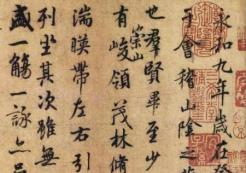 永和九年歲在
于會稽山陰之
也群賢畢至少
崇山
有峻領茂林脩
湍暎帶左右引
列坐其次雖無
盛一觴一詠亦